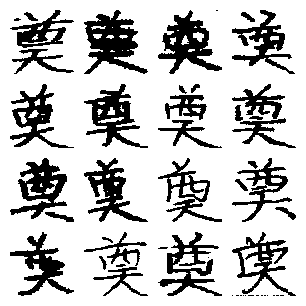 奠奠奠奠
奠奠奠奠
奠奠奠奠
奠奠奠奠